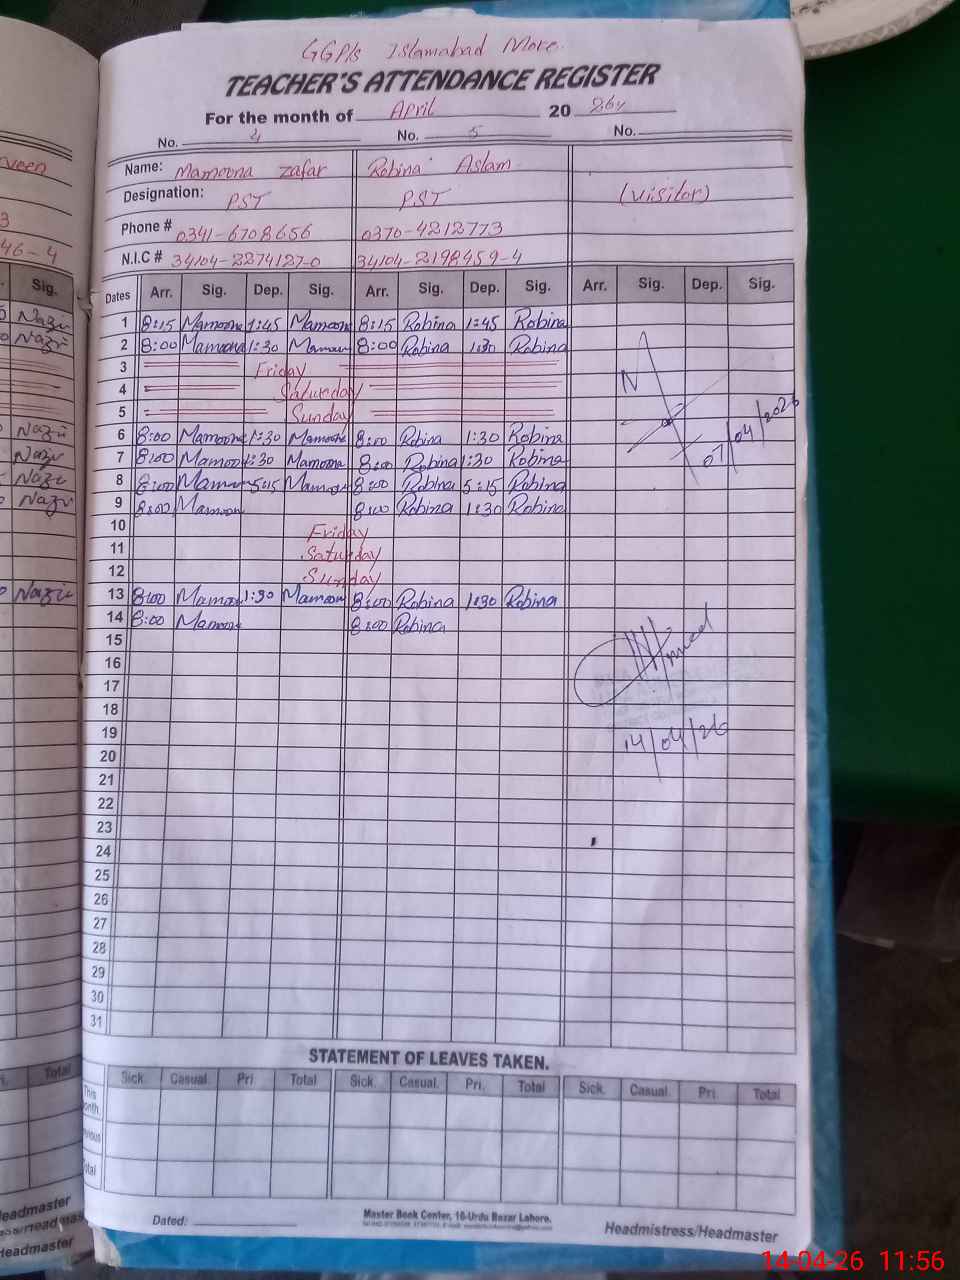 GGP/s Islamabad More.
TEACHER'S ATTENDANCE REGISTER
For the month of April 20 26
No. 4 No. 5 No.
Name: Mamoona Zafar Robina Aslam
Designation: PST PST (visitor)
Phone # 0341-6708656 0370-4212773
N.I.C # 34104-2274127-0 34104-2198459-4
46-4
Sig.
Dates Arr. Sig. Dep. Sig. Arr. Sig. Dep. Sig. Arr. Sig. Dep. Sig.
1 8:15 Mamoona 1:45 Mamoona 8:15 Robina 1:45 Robina
2 8:00 Mamoona 1:30 Mamoon 8:00 Robina 1:30 Robina
3 Friday
4 Saturday
5 Sunday
6 8:00 Mamoona 1:30 Mamoona 8:00 Robina 1:30 Robina
7 8:00 Mamoon 1:30 Mamoona 8:00 Robina 1:30 Robina
07/04/2026
8 8:00 Mamoon 5:15 Mamoon 8:00 Robina 5:15 Robina
9 8:00 Mamoon 8:00 Robina 1:30 Robina
10 Friday
11 Saturday
12 Sunday
13 8:00 Mamoon 1:30 Mamoon 8:00 Robina 1:30 Robina
14 8:00 Mamoon 8:00 Robina
15
16
17
18
19
14/04/26
20
21
22
23
24
25
26
27
28
29
30
31
STATEMENT OF LEAVES TAKEN.
Total
Sick. Casual. Pri. Total Sick. Casual. Pri. Total Sick. Casual. Pri. Total
This
Dated:
Master Book Center, 16-Urdu Bazar Lahore.
Headmistress/Headmaster
Headmaster
14-04-26 11:56